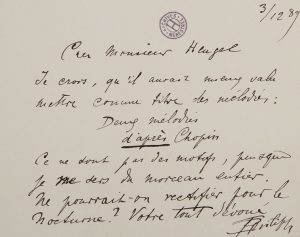 3/12 89
Cher Monsieur Heugel
Je crois, qu'il aurait mieux valu
mettre comme titre des mélodies:
Deux mélodies
d'après Chopin
Ce ne sont pas des motifs, puisque
je me sers du morceau entier.
Ne pourrait-on rectifier pour le
Nocturne? Votre tout dévoué